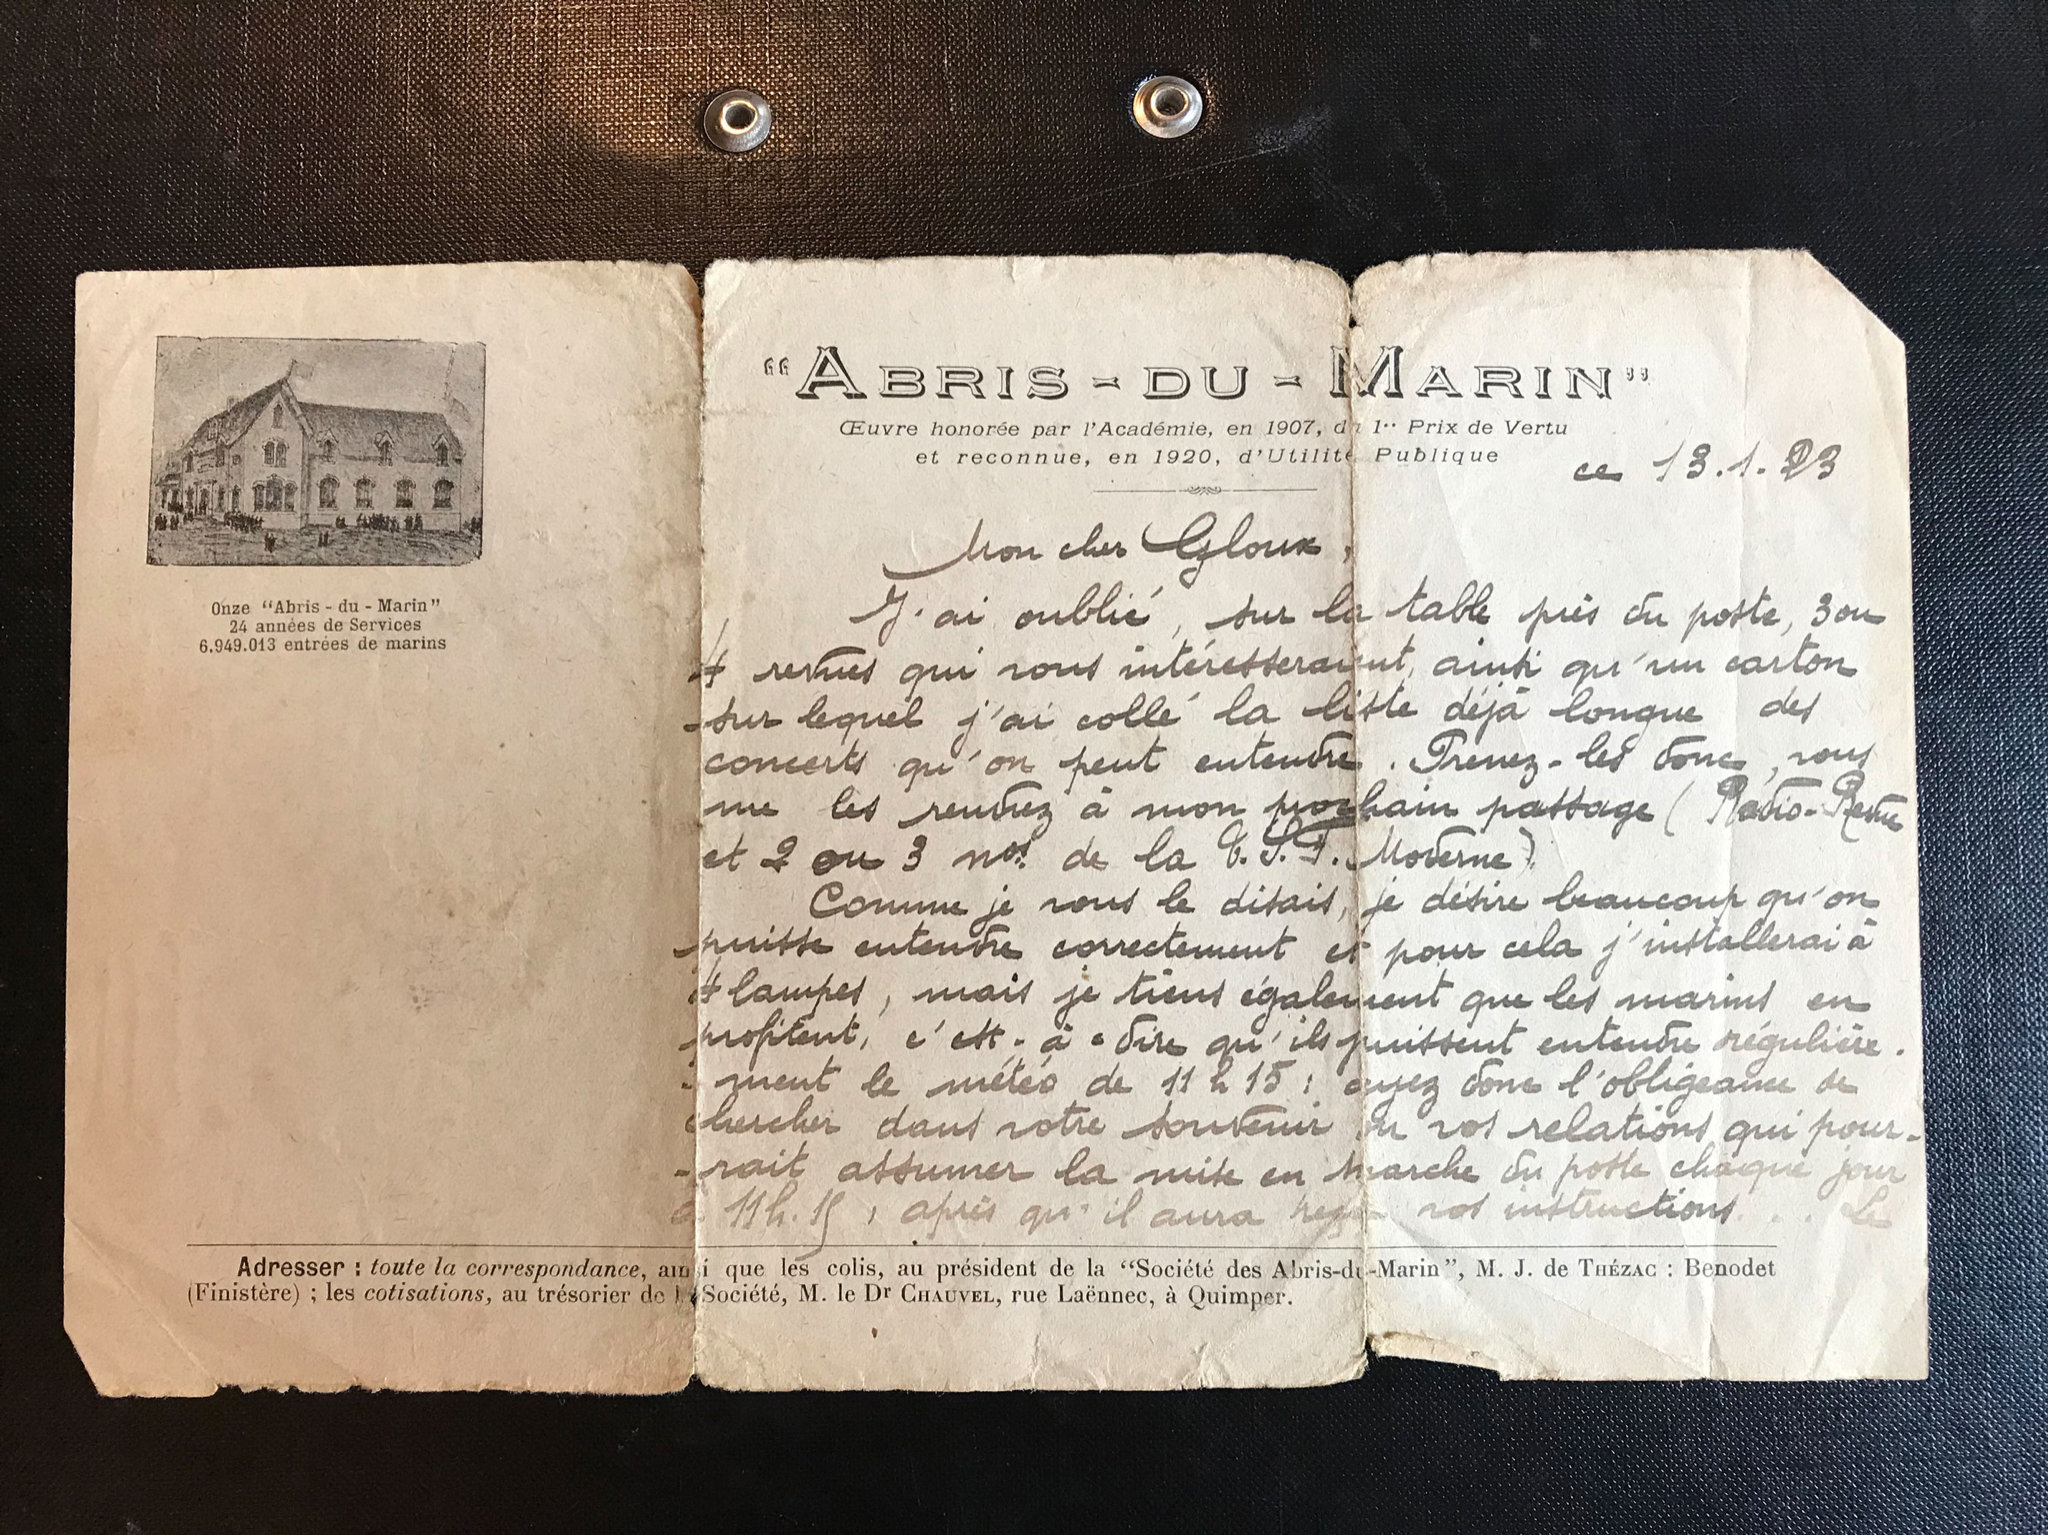 "ABRIS-DU-MARIN"
Œuvre honorée par l'Académie, en 1907, du 1er Prix de Vertu
et reconnue, en 1920, d'Utilité Publique
ce 13.1.23
Onze "Abris-du-Marin"
24 années de Services
6.949.013 entrées de marins
Mon cher Gloux,
J'ai oublié, sur la table près du poste, 3 ou
4 revues qui vous intéresseraient, ainsi qu'un carton
sur lequel j'ai collé la liste déjà longue des
concerts qu'on peut entendre. Prenez-les donc, vous
me les rendrez à mon prochain passage (Radio-Revue
et 2 ou 3 nos. de la T.S.F. Moderne).
Comme je vous le disais, je désire beaucoup qu'on
puisse entendre correctement et pour cela j'installerai à
4 lampes, mais je tiens également que les marins en
profitent, c'est-à-dire qu'ils puissent entendre régulière-
ment le météo de 11 h 15 ; ayez donc l'obligeance de
chercher dans votre souvenir ou vos relations qui pour-
-rait assumer la mise en marche du poste chaque jour
à 11h.15, après qu'il aura reçu vos instructions... Le
Adresser : toute la correspondance, ainsi que les colis, au président de la "Société des Abris-du-Marin", M. J. de THÉZAC : Benodet
(Finistère) ; les cotisations, au trésorier de la Société, M. le Dr CHAUVEL, rue Laënnec, à Quimper.